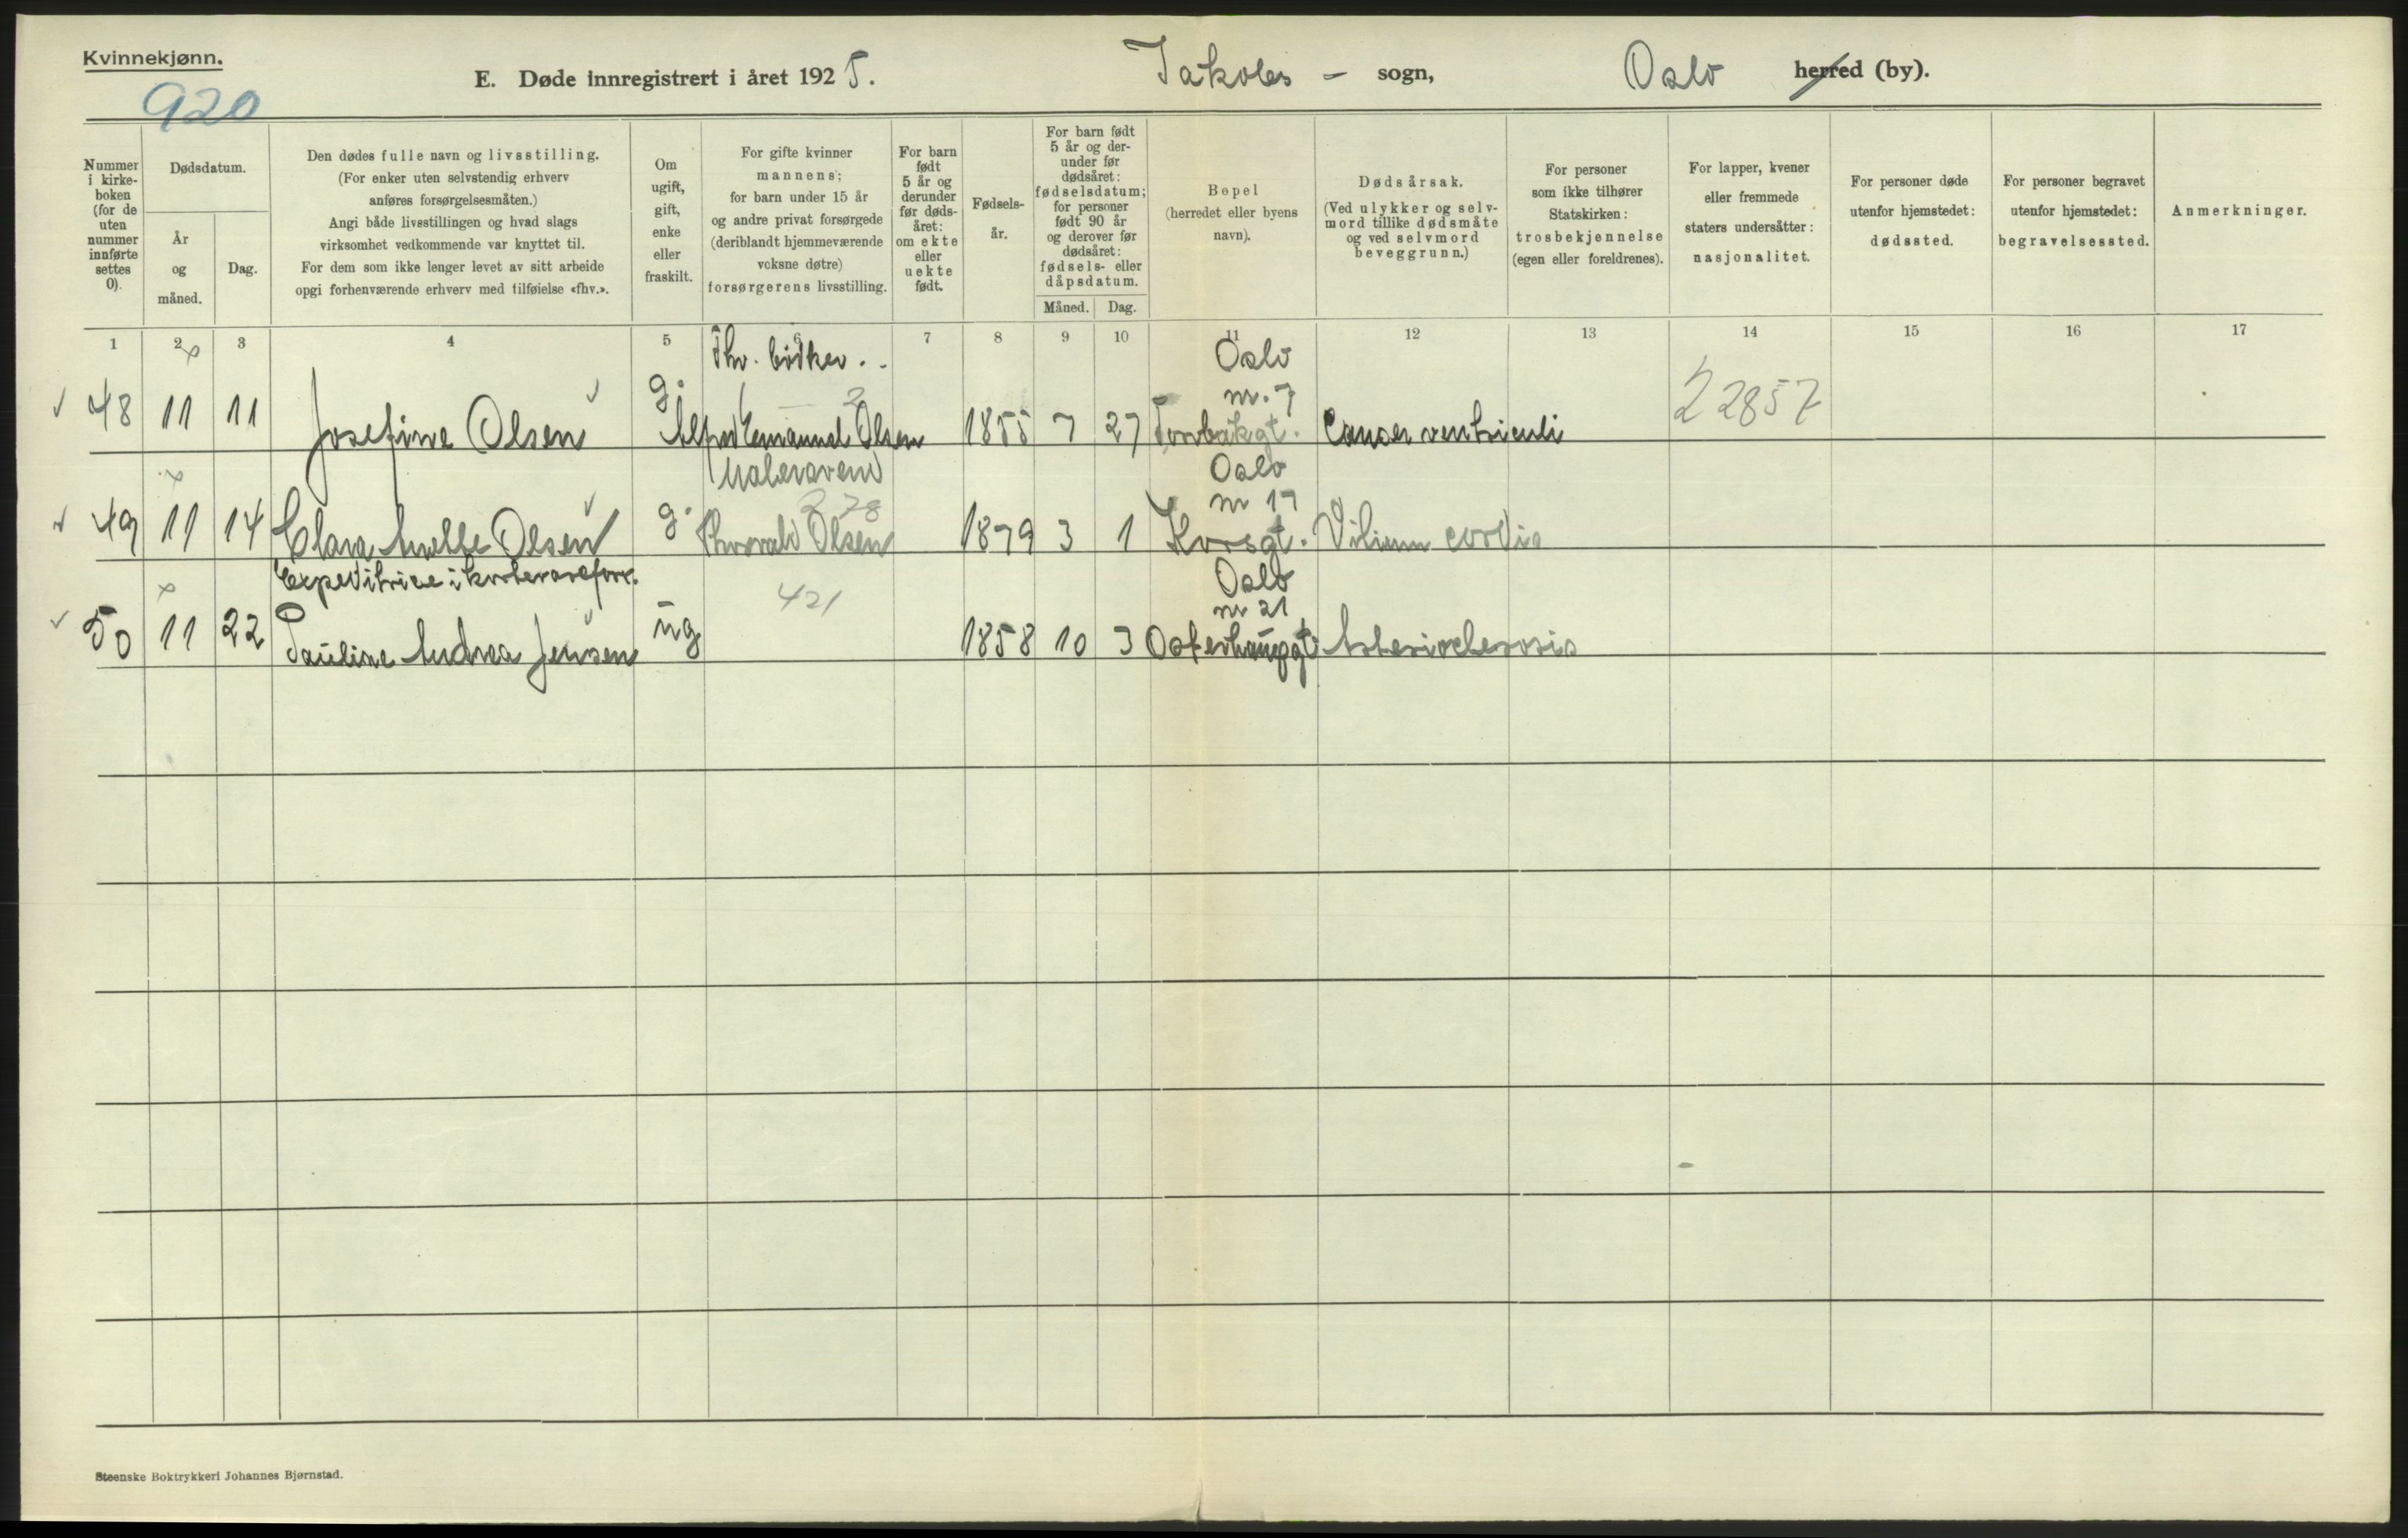 Kvinnekjønn.
920
E. Døde innregistrert i året 1925.
Jakobs - sogn,
Oslo herred (by).
Nummer i kirkeboken (for de uten nummer innførte settes 0).
Dødsdatum.
År og måned.
Dag.
Den dødes fulle navn og livsstilling.
(For enker uten selvstendig erhverv
anføres forsørgelsesmåten.)
Angi både livsstillingen og hvad slags
virksomhet vedkommende var knyttet til.
For dem som ikke lenger levet av sitt arbeide
opgi forhenværende erhverv med tilføielse «fhv.».
Om ugift, gift, enke eller fraskilt.
For gifte kvinner
mannens;
for barn under 15 år
og andre privat forsørgede
(deriblandt hjemmeværende
voksne døtre)
forsørgerens livsstilling.
For barn født 5 år og derunder før døds-året: om ekte eller uekte født.
Fødsels-år.
For barn født 5 år og der-under før dødsåret: fødselsdatum; for personer født 90 år og derover før dødsåret: fødsels- eller dåpsdatum.
Måned.
Dag.
Bopel
(herredet eller byens
navn).
Dødsårsak.
(Ved ulykker og selv-
mord tillike dødsmåte
og ved selvmord
beveggrunn.)
For personer
som ikke tilhører
Statskirken:
trosbekjennelse
(egen eller foreldrenes).
For lapper, kvener
eller fremmede
staters undersåtter:
nasjonalitet.
For personer døde
utenfor hjemstedet:
dødssted.
For personer begravet
utenfor hjemstedet:
begravelsessted.
Anmerkninger.
1 2 3 4 5 6 7 8 9 10 11 12 13 14 15 16 17
Fhv. bødker.
Oslo
nr. 7
48 11 11 Josefine Olsen g. Alfred Emanuel Olsen 1855 7 27 Torbakgt. Cancer ventriculi
2
22857
Malersvend
Oslo
278
nr 17
49 11 14 Clara Anette Olsen g. Thorvald Olsen 1879 3 1 Korsgt. Vitium cordis
Expeditrice i kortevareforr.
Oslo
421
nr 21
50 11 22 Pauline Andrea Jensen ug 1858 10 3 Osterhausgt. Arteriosclerosis
Steenske Boktrykkeri Johannes Bjørnstad.